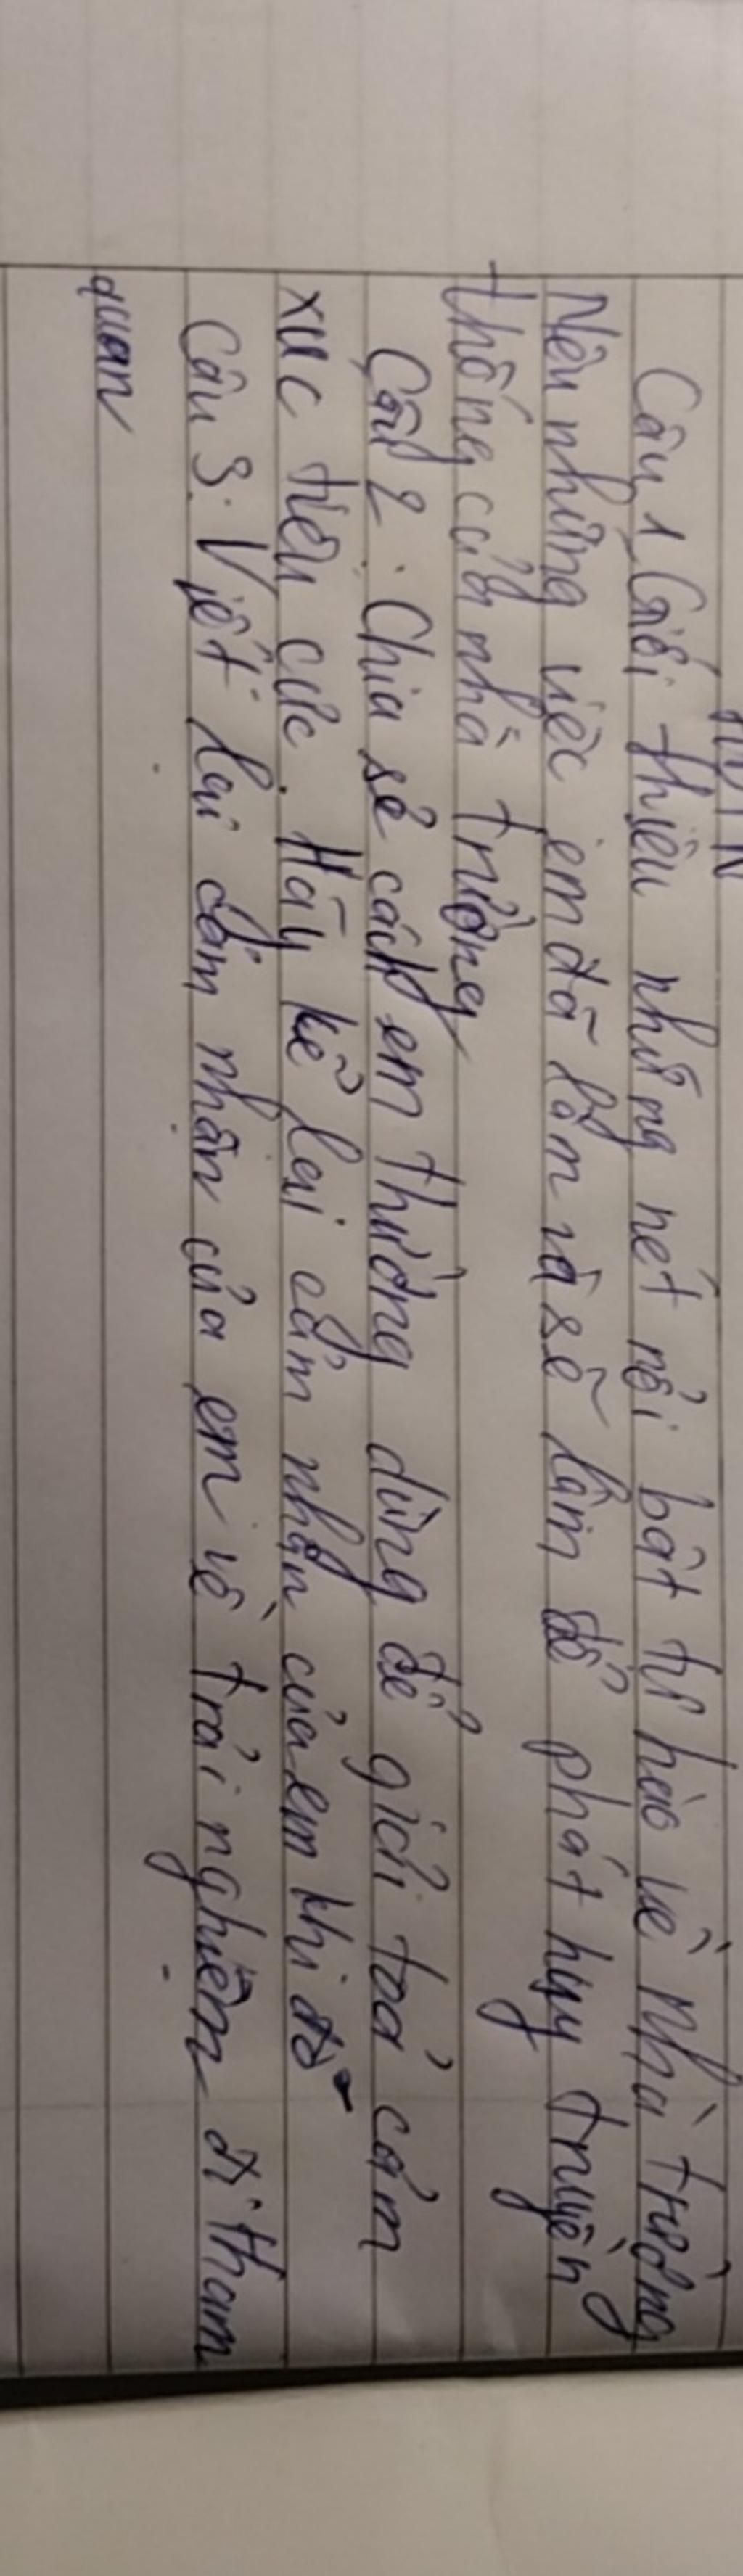 HĐTN
Câu 1. Giới thiệu những nét nổi bật tự hào về nhà trường
Nêu những việc em đã làm và sẽ làm để phát huy truyền
thống của nhà trường
Câu 2. Chia sẻ cách em thường dùng để giải toả cảm
xúc tiêu cực. Hãy kể lại cảm nhận của em khi đó
Câu 3. Viết lại cảm nhận của em về trải nghiệm đi tham
quan